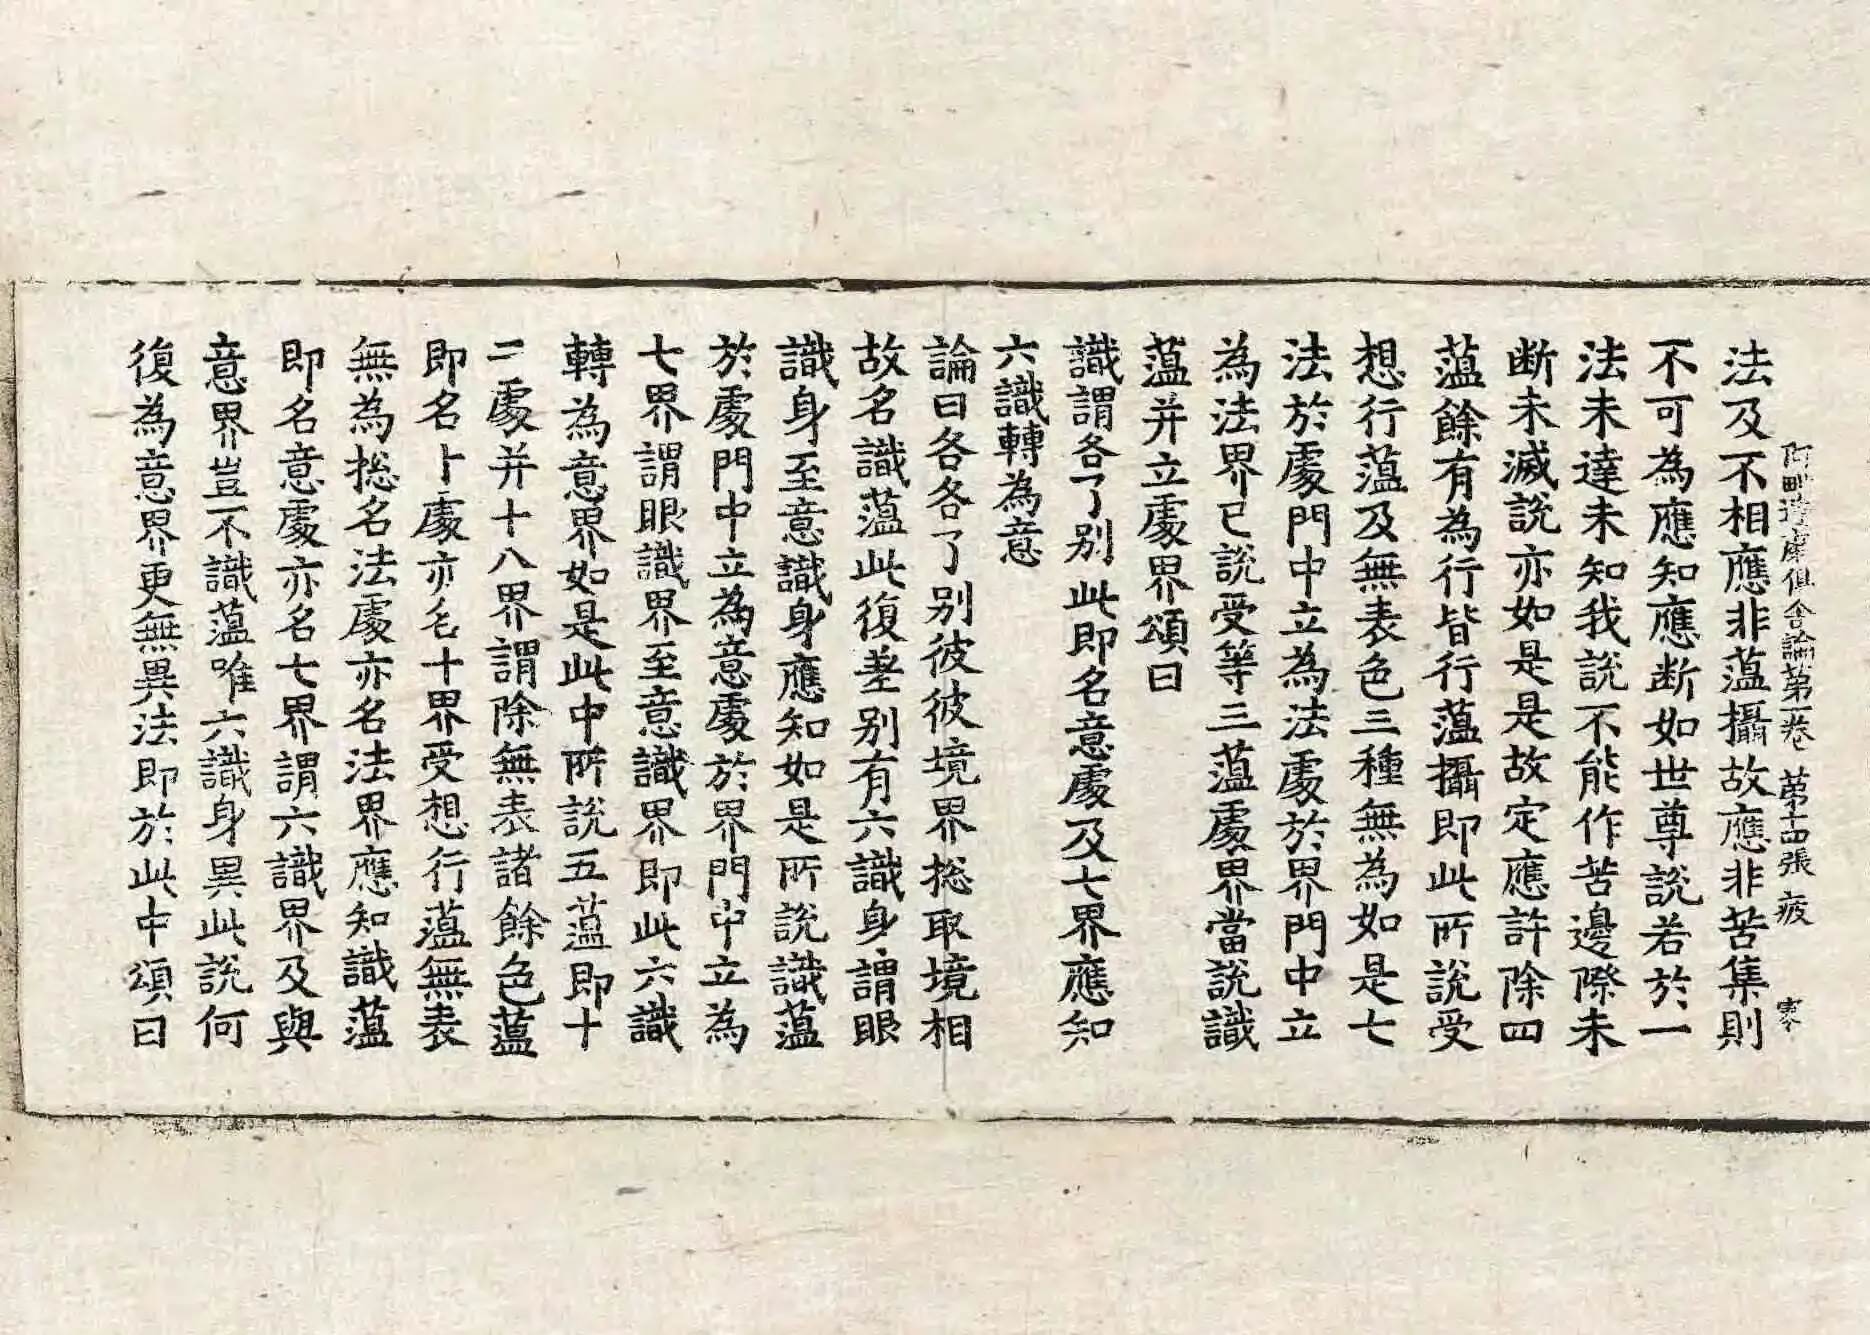 阿毗達磨俱舍論第一卷 第十四張 疲
法及不相應非薀攝故應非苦集則
不可為應知應断如世尊說若於一
法未達未知我說不能作苦邊際未
断未滅說亦如是是故定應許除四
薀餘有為行皆行薀攝即此所說受
想行薀及無表色三種無為如是七
法於處門中立為法處於界門中立
為法界已說受等三薀處界當說識
薀并立處界頌曰
識謂各了別此即名意處及七界應知
六識轉為意
論曰各各了别彼彼境界捴取境相
故名識薀此復差别有六識身謂眼
識身至意識身應知如是所說識薀
於處門中立為意處於界門中立為
七界謂眼識界至意識界即此六識
轉為意界如是此中所說五薀即十
二處并十八界謂除無表諸餘色薀
即名十處亦名十界受想行薀無表
無為捴名法處亦名法界應知識薀
即名意處亦名七界謂六識界及與
意界豈不識薀唯六識身異此說何
復為意界更無異法即於此中頌曰